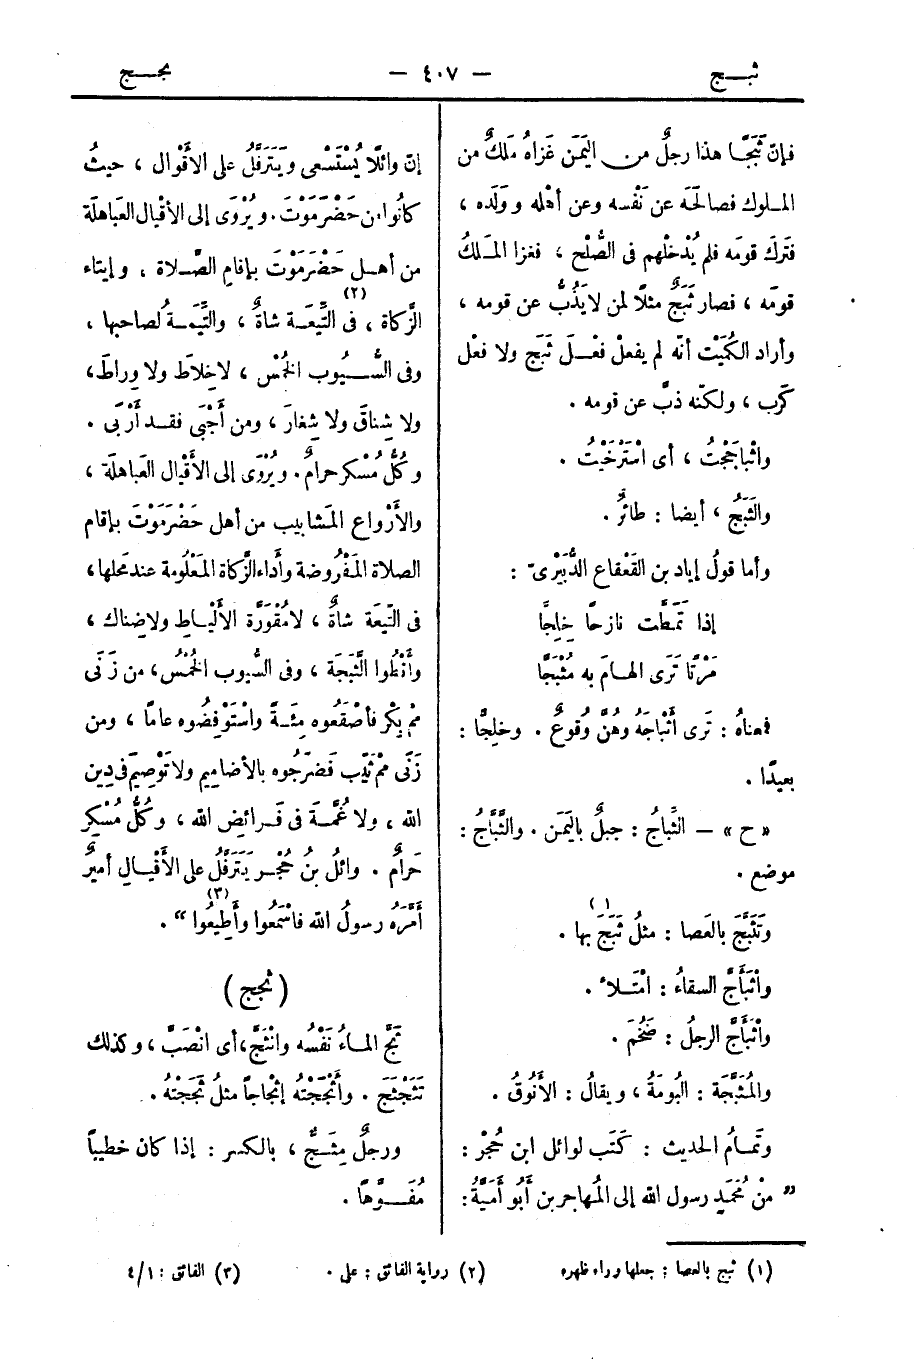 ثبج
— ٤٠٧ —
ثجج
فإنّ ثَبَجًا هذا رجلٌ من اليَمَن غَزاهُ مَلكٌ من
الملوك فصالَحَه عن نَفْسه وعن أهْله وولَده ،
فتَركَ قومَه فلم يُدْخلْهم فى الصُّلْح ، فغزا المَلكُ
قومَه ، فصار ثَبَجٌ مثلًا لمن لا يَذُبُّ عن قومه ،
وأراد الكُمَيْت أنّه لم يفعلْ فعْلَ ثَبَج ولا فعْل
كَرِب ، ولكنّه ذبَّ عن قومه .
واثْباجَجْتُ ، أى اسْتَرْخَيْتُ .
والثَبَجُ ، أيضا : طائرٌ .
وأما قولُ إياد بن القَعْقاع الدُّبَيْرىّ :
إذا تَمَطَّت نازحًا خِلِجًّا
مَرْتًا تَرَى الهامَ به مُثْبَجًّا
فمعناهُ : تَرى أثْباجَهُ وهُنَّ وُقوعٌ . وخِلِجًّا :
بعيدًا .
« ح » — الثِّباجُ : جبلٌ باليَمَن . والثَّبَّاجُ :
موضع .
وتَثَبَّجَ بالعَصا : مثلُ ثَبَجَ بها (١) .
واثْبَأَجَّ السقاءُ : امْتَلأ .
واثْبَأَجَّ الرجلُ : ضَخُمَ .
والمُثَبَّجَة : البُومَةُ ، ويقالُ : الأَنُوقُ .
وتَمامُ الحديث : كَتَب لوائل ابن حُجْر :
" مِنْ مُحَمَّد رسول الله إلى المُهاجر بن أَبُو أُمَيَّةَ :
إنّ وائلًا يُسْتَسْعى ويَتَرَفَّلُ على الأقْوال ، حيثُ
كانُوا من حَضْرَمَوْتَ . ويُرْوَى إلى الأقْيال العَباهلَة
من أهل حَضْرَمَوْتَ بإقامِ الصَّلاة ، وإيتاء
الزَّكاة ، فى (٢) التِّيعَة شاةٌ ، والتِّيمَةُ لصاحبها ،
وفى السُّيُوب الخُمْس ، لا خِلاطَ ولا وِراطَ ،
ولا شِناقَ ولا شِغارَ ، ومن أَجْبَى فقد أَرْبَى .
وكُلُّ مُسْكر حرامٌ . ويُرْوَى إلى الأَقْيال العَباهلَة ،
والأَرْواع المَشابيب من أهل حَضْرَمَوْتَ بإقام
الصلاة المَفْروضة وأداء الزَّكاة المَعْلُومة عند محلها ،
فى التِّيعَة شاةٌ ، لا مُقْوَرَّة الأَلْياط ولا ضِناك ،
وأَنْطُوا الثَّبَجَة ، وفى السُّيُوب الخُمْس ، من زَنَى
مِمْ بِكْر فأصْقَعُوه مِئَةً واسْتَوْفِضُوه عاماً ، ومن
زَنَى مِمْ ثَيِّب فَضَرِّجُوه بالأضاميم ولا تَوْصِيمَ فى دِين
الله ، ولا غُمَّةَ فى فَرائِض الله ، وكُلُّ مُسْكِر
حَرامٌ . وائلُ بنُ حُجْر يَتَرَفَّلُ على الأَقْيالِ أَميرٌ
أَمَّرَهُ رسولُ الله فاسْمَعُوا وأَطِيعُوا (٣) " .
( ثجج )
ثَجَّ الماءُ نَفْسُه وانْثَجَّ ، أى انْصَبَّ ، وكذلك
تَثَجْثَجَ . وأَثْجَجْتُهُ إثْجاجاً مثلُ ثَجَجْتُهُ .
ورجلٌ مِثَجٌّ ، بالكسر : إذا كان خطيباً
مُفَوَّهًا .
(١) ثبج بالعصا : جعلها وراء ظهره
(٢) رواية الفائق : على .
(٣) الفائق : ٤/١